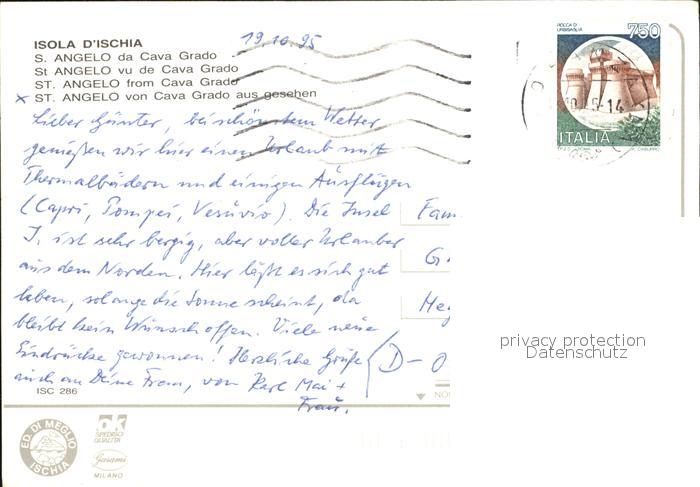 ISOLA D'ISCHIA
S. ANGELO da Cava Grado
St ANGELO vu de Cava Grado
ST. ANGELO from Cava Grado
x ST. ANGELO von Cava Grado aus gesehen
19.10.95
Lieber Günter, bei schönstem Wetter
genießen wir hier einen Urlaub mit
Thermalbädern und einigen Ausflügen
(Capri, Pompei, Vesuvio). Die Insel
I. ist sehr bergig, aber voller Urlauber
aus dem Norden. Hier läßt es sich gut
leben, solange die Sonne scheint, da
bleibt kein Wunsch offen. Viele neue
Eindrücke gewonnen! Herzliche Grüße
auch an Deine Frau, von Karl Mai +
Frau.
Fam.
G.
D-O
ISC 286
ROCCA DI
URBISAGLIA
750
ITALIA
ED. DI MEGLIO
ISCHIA
ok
SPEDISCI
QUALITÀ
Garami
MILANO
privacy protection
Datenschutz